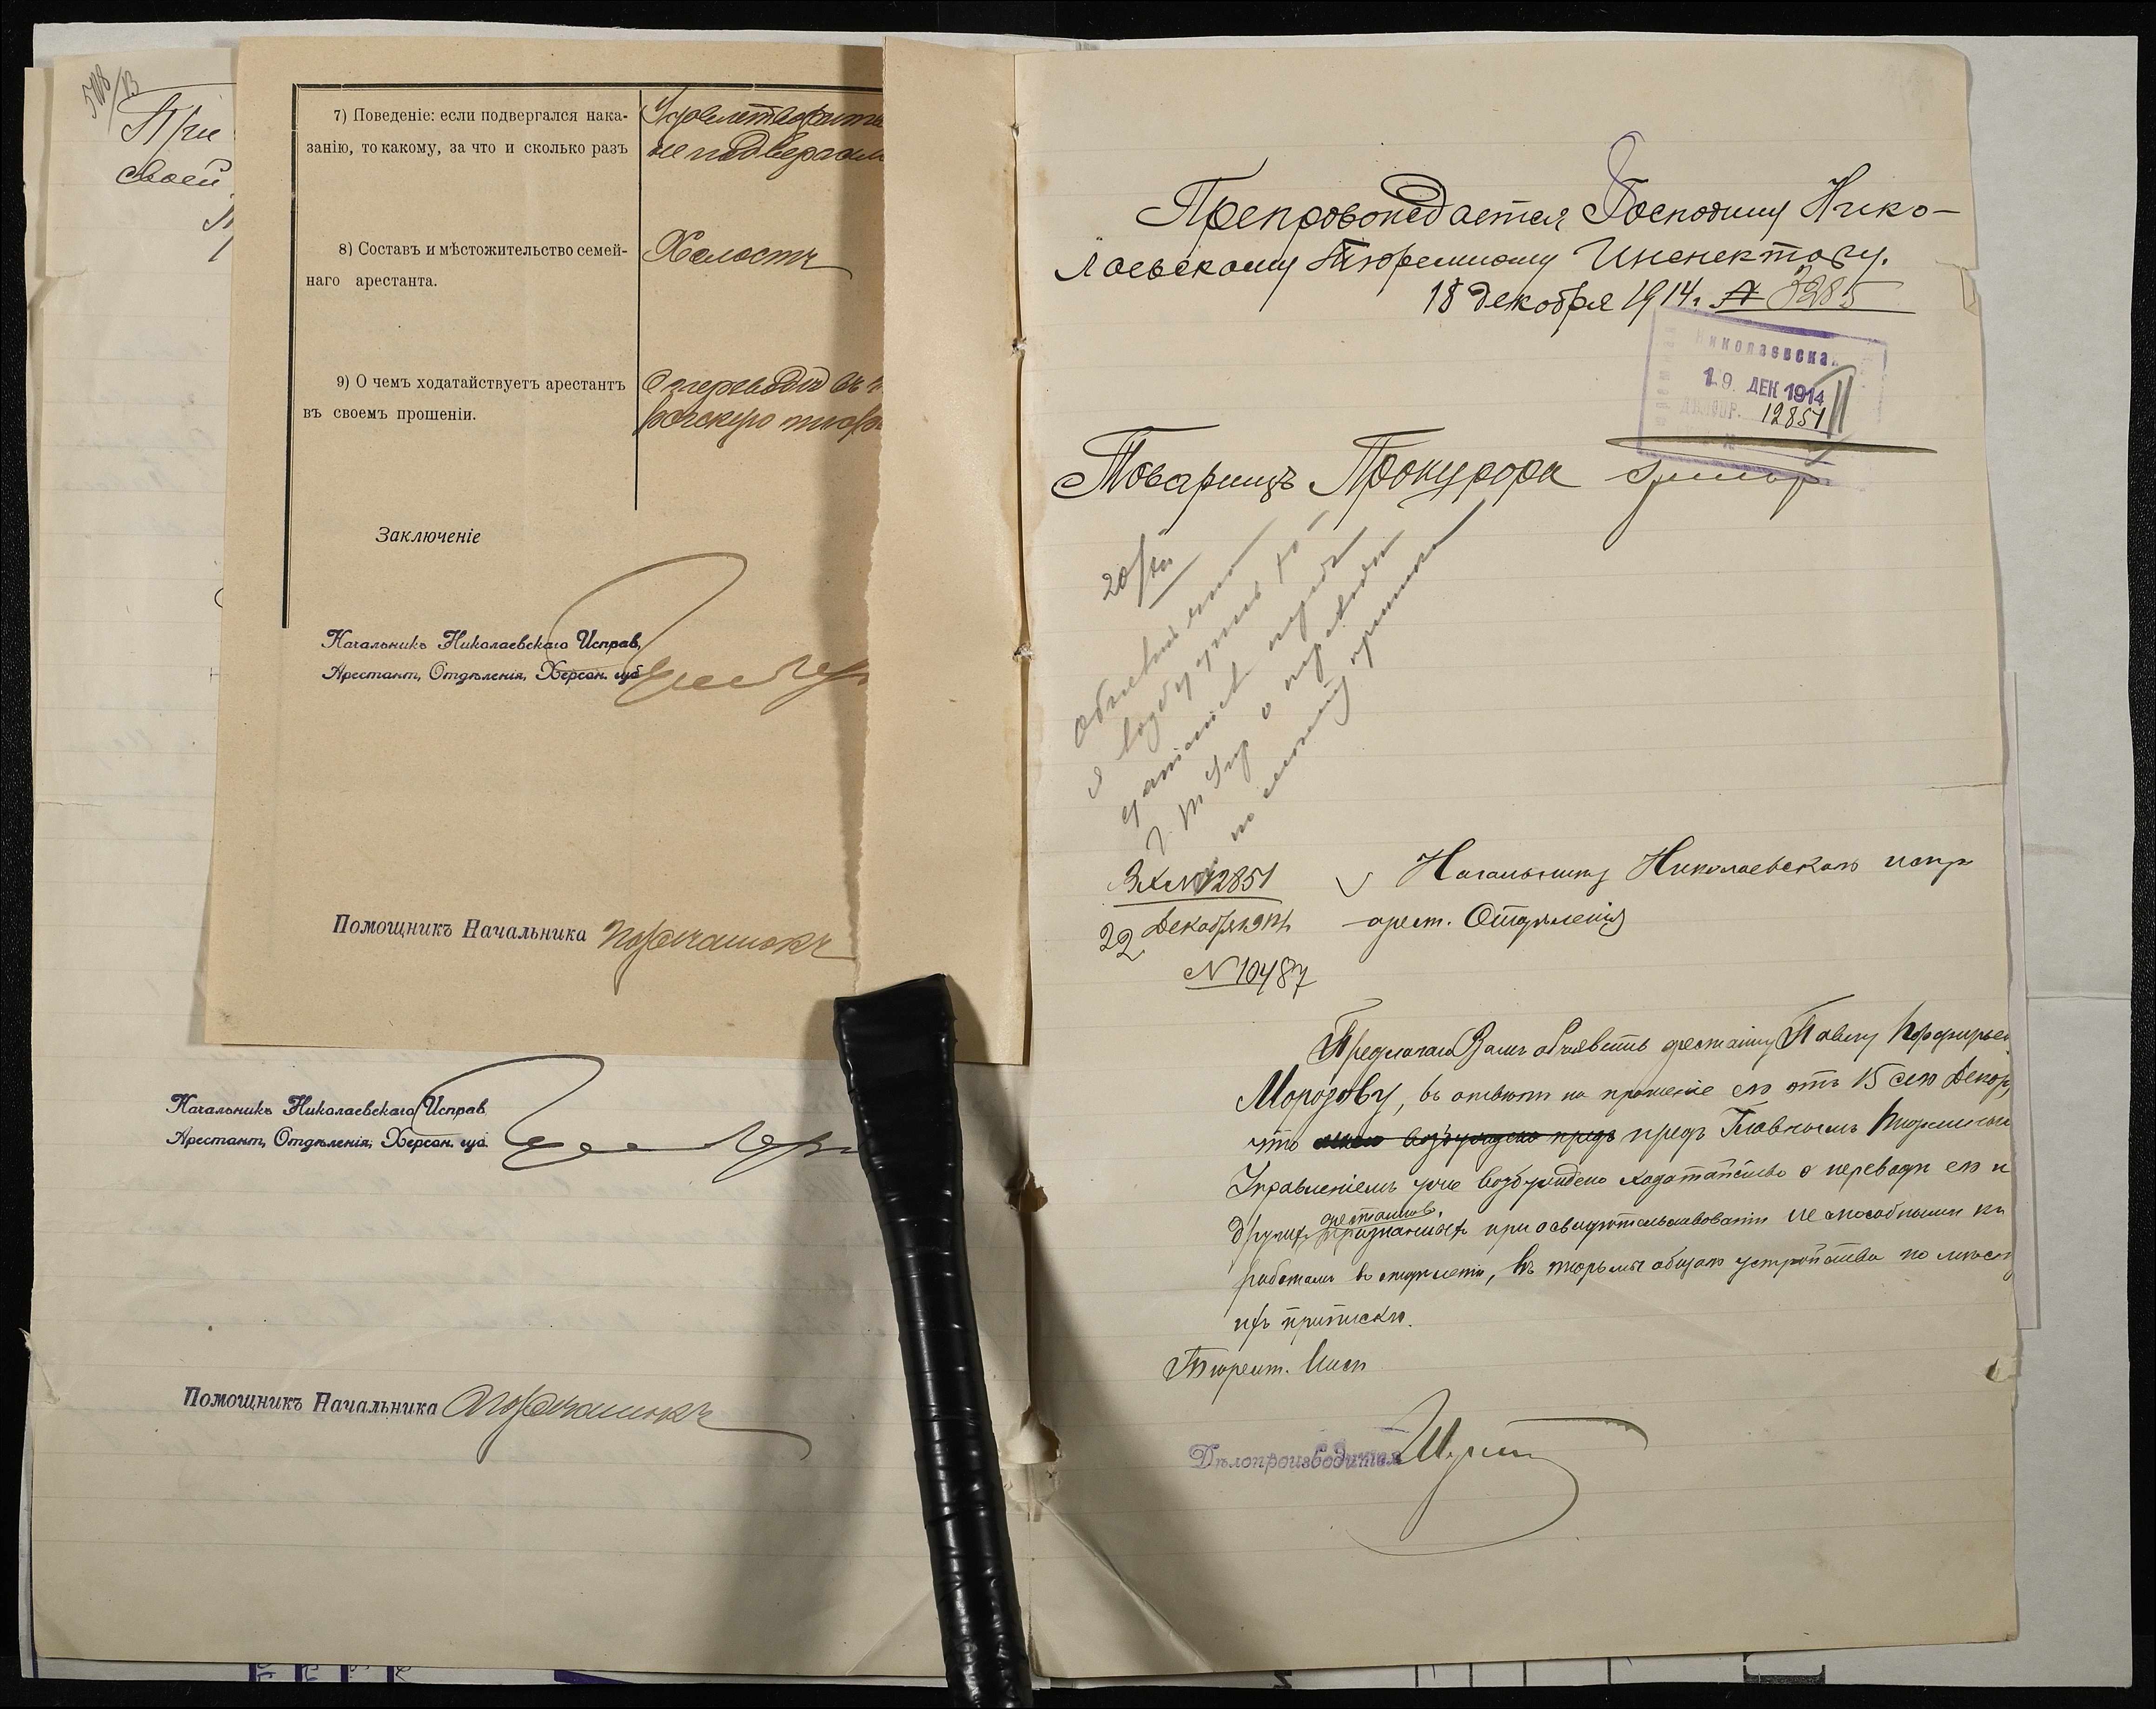 508/13
При
своей
7) Поведеніе: если подвергался нака-
занію, то какому, за что и сколько разъ
Удовлетворите
не подвергалс
8) Составъ и мѣстожительство семей-
наго арестанта.
Холостъ
9) О чемъ ходатайствуетъ арестантъ
въ своемъ прошеніи.
О переводѣ въ
Заключеніе
Начальникъ Николаевскаго Исправ.
Арестант. Отдѣленія, Херсон. губ.
Помощникъ Начальника
Начальникъ Николаевскаго Исправ.
Арестант. Отдѣленія, Херсон. губ.
Помощникъ Начальника
Препровождается Господину Нико-
лаевскому Тюремному Инспектору.
18 декабря 1914 г. № 3285
Николаевска
19 ДЕК 1914
12851
Товарищъ Прокурора
20/XII
Объявить что
я
о переводѣ
Вх № 12851
22 Декабря 1914
№ 10487
Начальнику Николаевскаго испр
арест. Отдѣленія
Предлагаю Вамъ объявить арестанту Павлу Порфирьев
Морозову, въ отвѣтъ на прошеніе его отъ 15 сего Декаб,
что возбуждено предъ предъ Главнымъ Тюремным
Управленіемъ уже возбуждено ходатайство о переводѣ его и
другихъ арестантов, признанныхъ при освидѣтельствованіи неспособными къ
работамъ въ отдѣленіи, въ тюрьмы общаго устройства по мѣсту
ихъ приписки.
Тюремн. Инсп
Дѣлопроизводитель